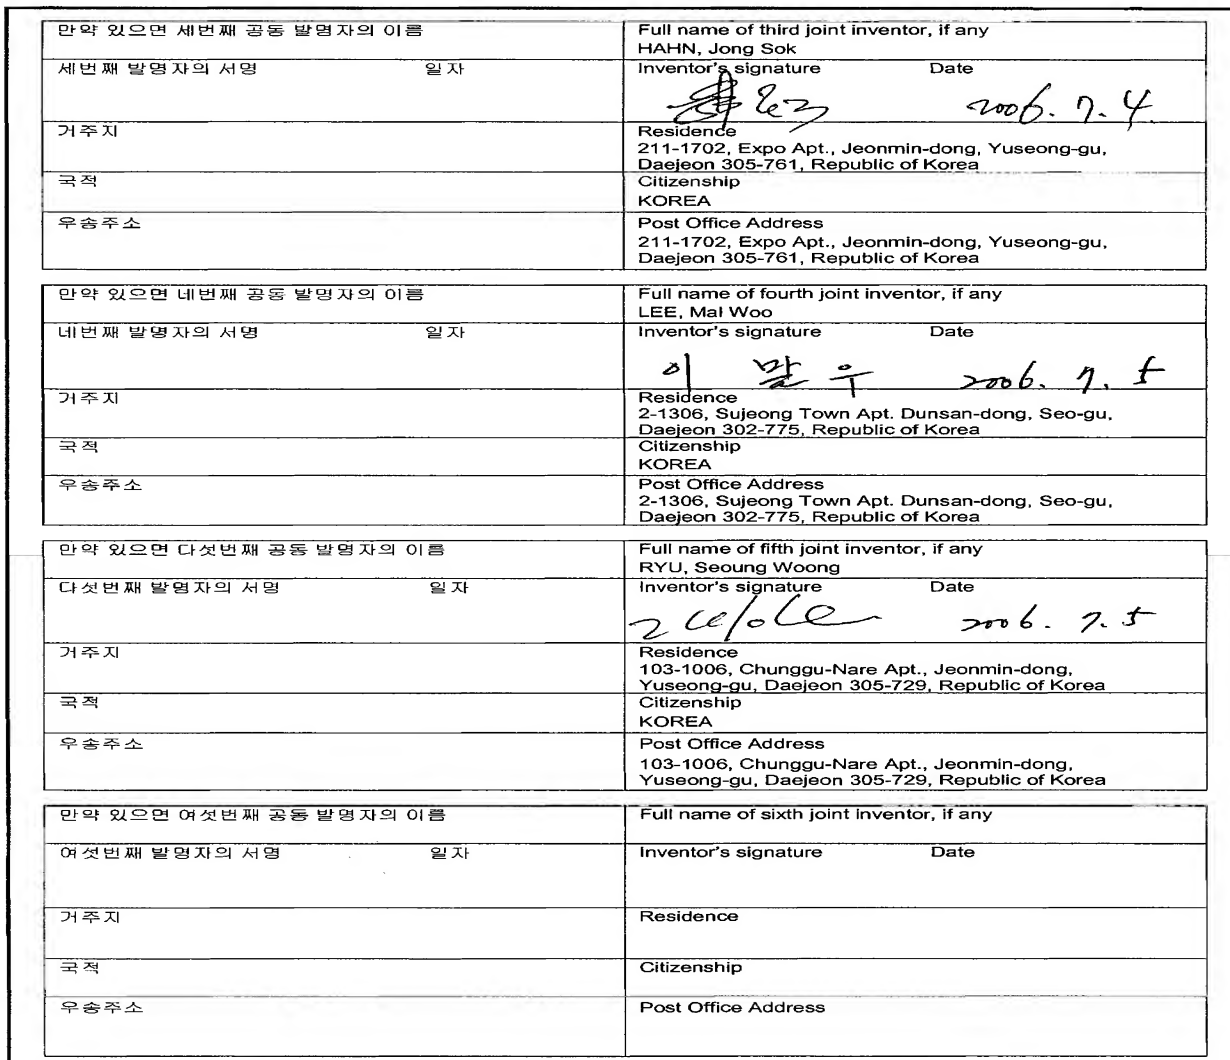 만약 있으면 세번째 공동 발명자의 이름
Full name of third joint inventor, if any
HAHN, Jong Sok
세번째 발명자의 서명 일자
Inventor's signature Date
2006. 7. 4.
거주지
Residence
211-1702, Expo Apt., Jeonmin-dong, Yuseong-gu,
Daejeon 305-761, Republic of Korea
국적
Citizenship
KOREA
우송주소
Post Office Address
211-1702, Expo Apt., Jeonmin-dong, Yuseong-gu,
Daejeon 305-761, Republic of Korea
만약 있으면 네번째 공동 발명자의 이름
Full name of fourth joint inventor, if any
LEE, Mal Woo
네번째 발명자의 서명 일자
Inventor's signature Date
이 말 우 2006. 7. 5
거주지
Residence
2-1306, Sujeong Town Apt. Dunsan-dong, Seo-gu,
Daejeon 302-775, Republic of Korea
국적
Citizenship
KOREA
우송주소
Post Office Address
2-1306, Sujeong Town Apt. Dunsan-dong, Seo-gu,
Daejeon 302-775, Republic of Korea
만약 있으면 다섯번째 공동 발명자의 이름
Full name of fifth joint inventor, if any
RYU, Seoung Woong
다섯번째 발명자의 서명 일자
Inventor's signature Date
2006. 7. 5
거주지
Residence
103-1006, Chunggu-Nare Apt., Jeonmin-dong,
Yuseong-gu, Daejeon 305-729, Republic of Korea
국적
Citizenship
KOREA
우송주소
Post Office Address
103-1006, Chunggu-Nare Apt., Jeonmin-dong,
Yuseong-gu, Daejeon 305-729, Republic of Korea
만약 있으면 여섯번째 공동 발명자의 이름
Full name of sixth joint inventor, if any
여섯번째 발명자의 서명 일자
Inventor's signature Date
거주지
Residence
국적
Citizenship
우송주소
Post Office Address